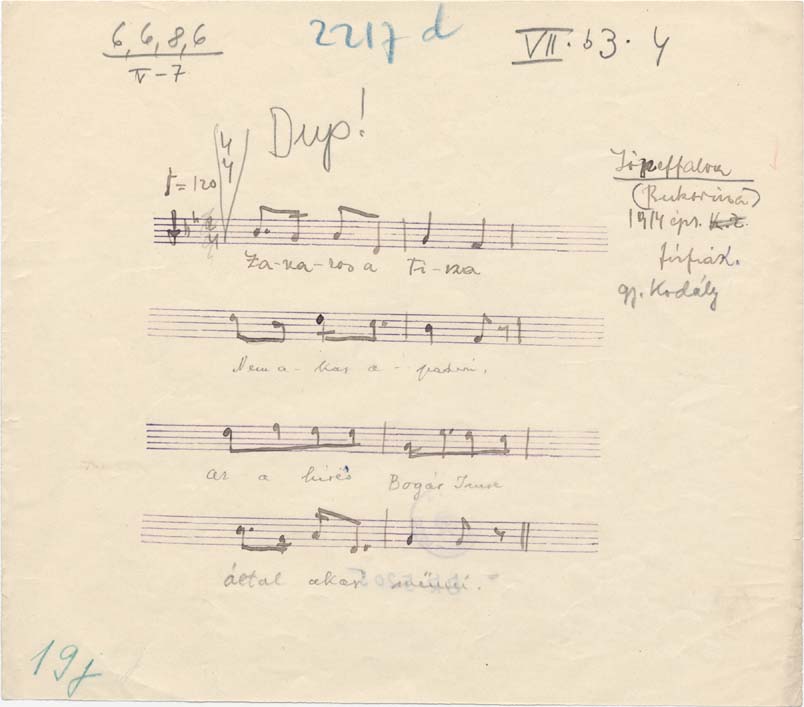 6, 6, 8, 6
V – 7
2217 d
VII. b3. 4
Dup!
4
4
= 120
Józseffalva
(Bukovina)
1914 ápr. K. Z.
férfiak.
gy. Kodály
Za-va-ros a Ti-sza
Nem a- kar a - padni,
az a hires Bogár Imre
által akar menni.
19j